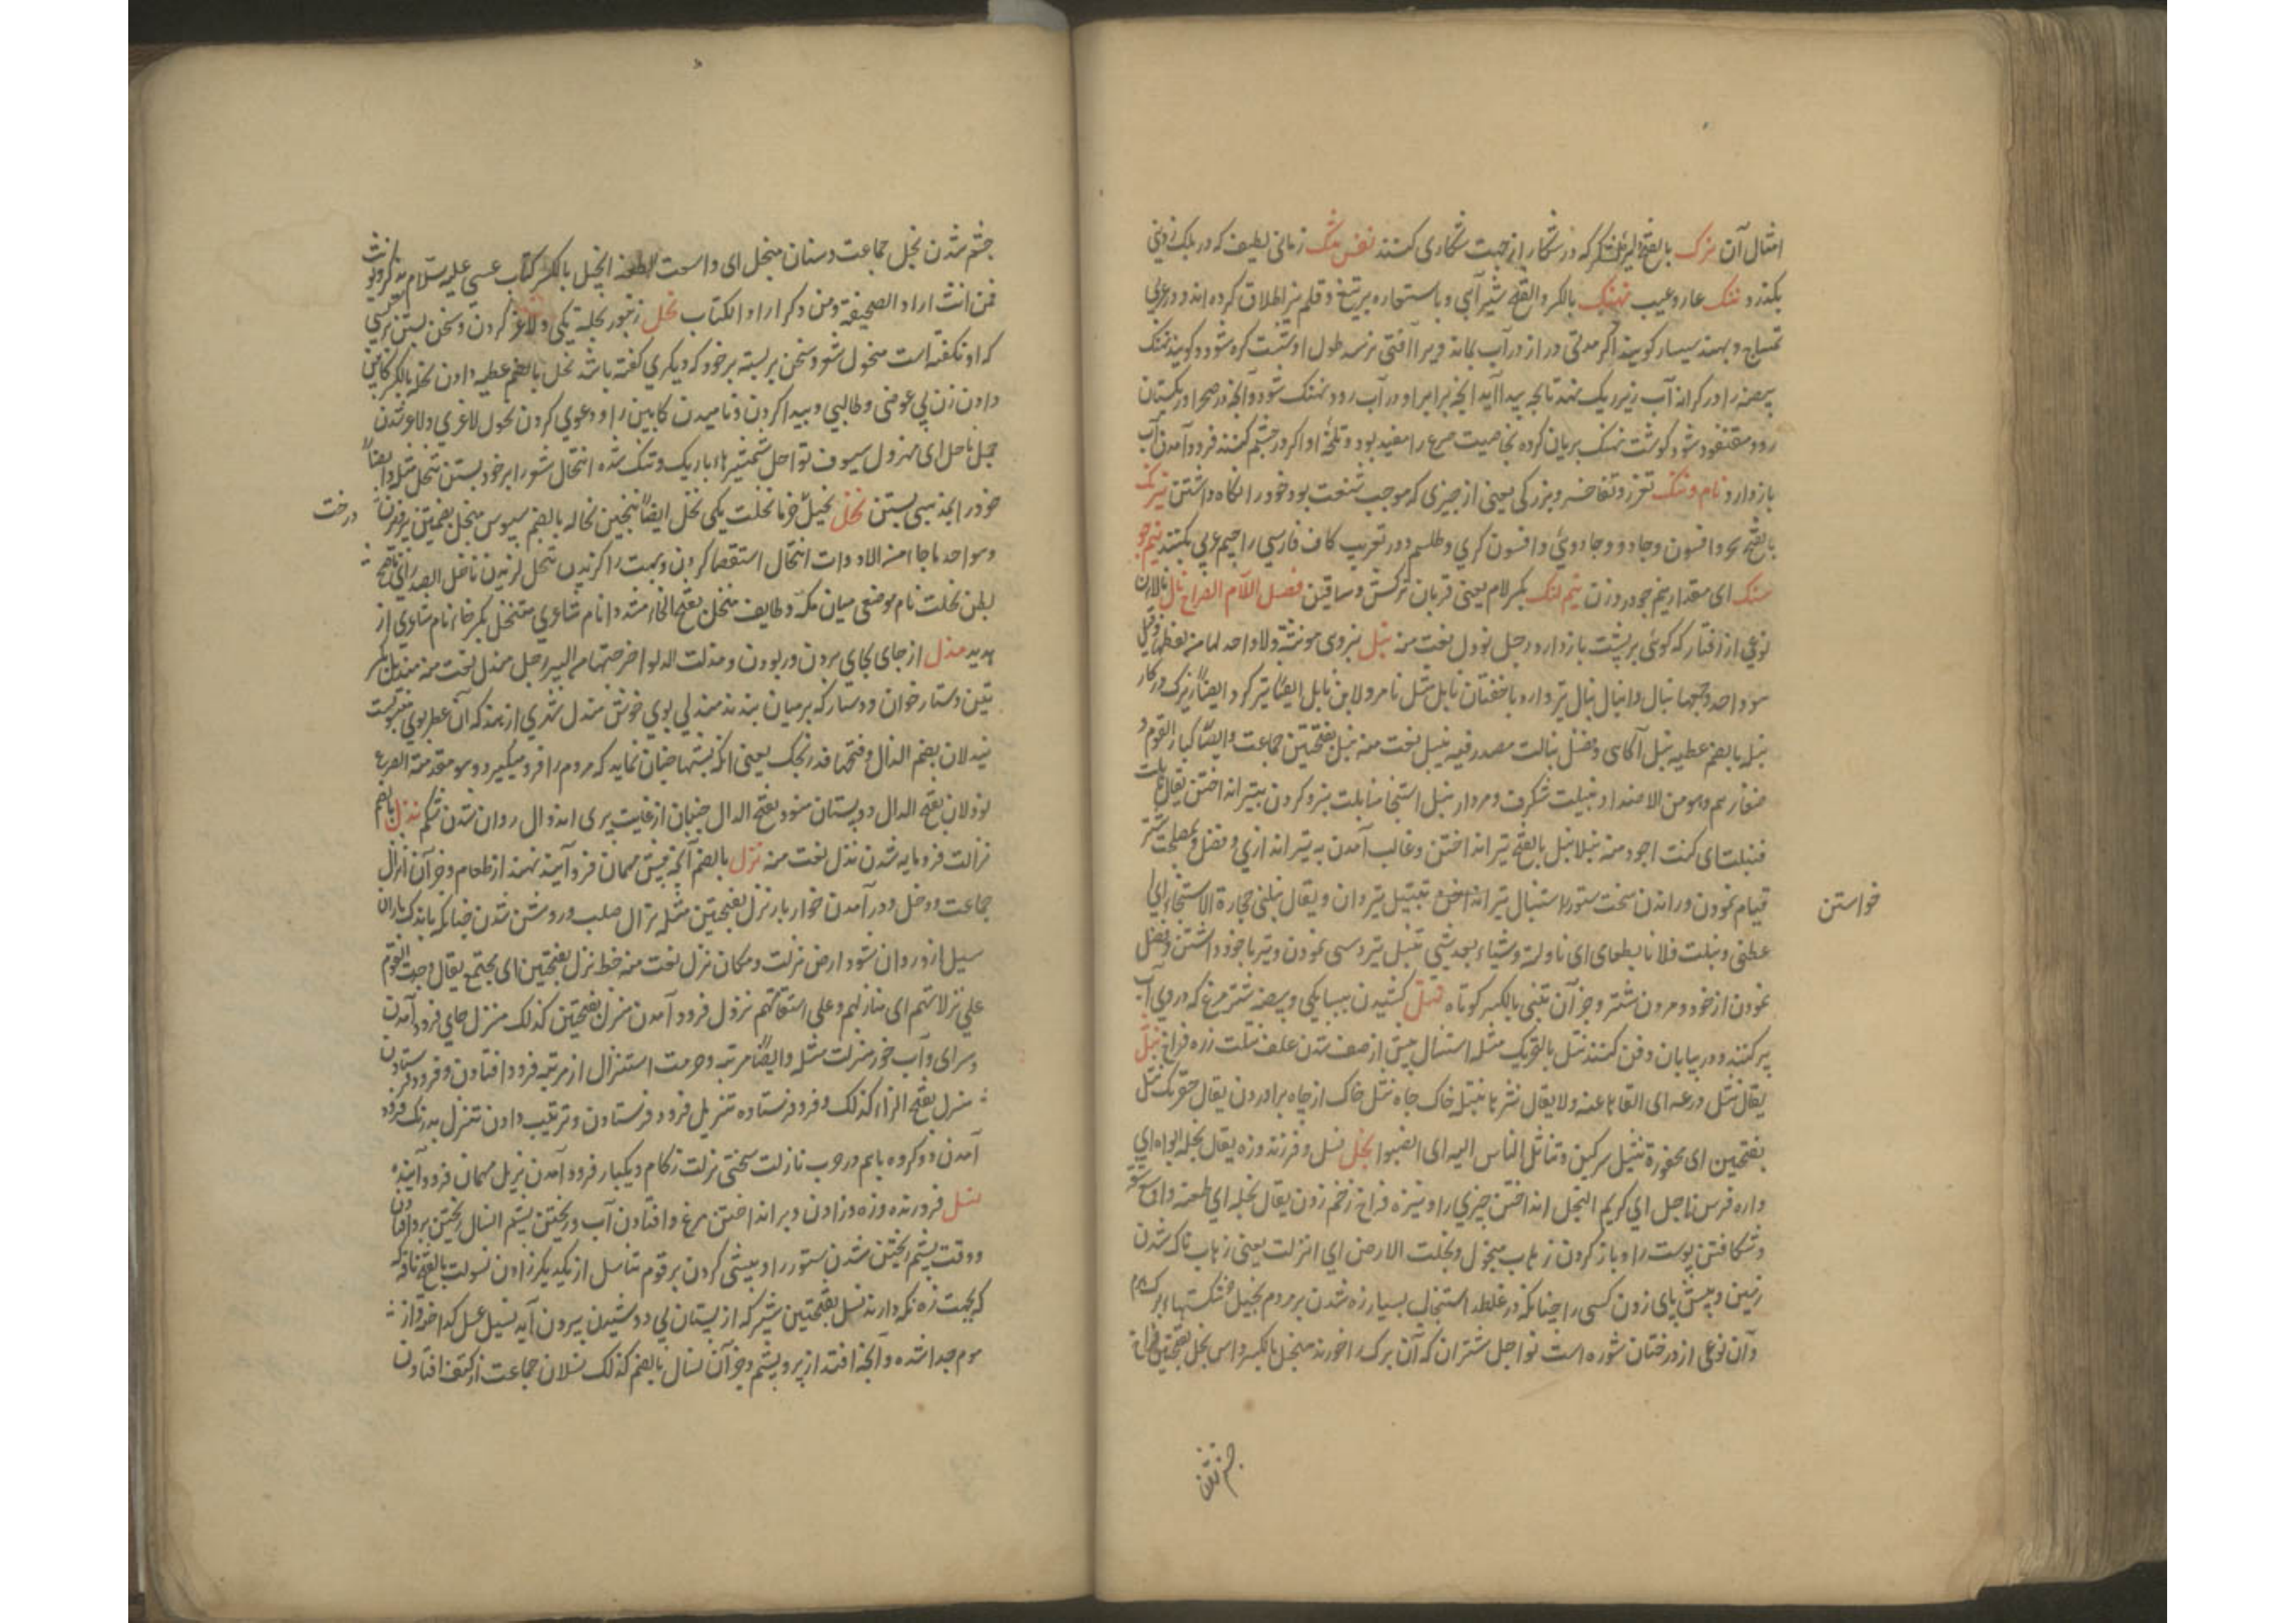 امثال آن نزک بالفتح دلیر لشکر که در شکار از جهت شکاری کنند نفس تنگ زمانی لطیف که در یک زدنی
بگذرد ننگ عار و عیب نهنگ بالکسر و الفتح شیر آبی و باستعاره بر تیغ و قلم نیز اطلاق کرده اند و در عربی
تمساح و بهند سیسار گویند اگر مدتی دراز در آب بماند و یرا آفتی نرسد طول او شست گره شود و گویند نهنگ
بیضه را در کرانه آب زیر ریک نهد تا بچه پیدا آید انچه برابر او در آب رود نهنگ شود و آنچه در صحرا و ریگستان
رود سقنقور شود گوشت نهنگ بریان کرده بخاصیت صرع را مفید بود و تلخه او اگر در چشم کنند فرود آمدن آب
باز دارد نام و ننگ تعزز و تفاخر و بزرگی یعنی از چیزی که موجب شنعت بود خود را نگاه داشتن نیرنگ
بالفتح سحر و افسون و جادو و جادوئی و افسون گری و طلسم و در تعریب کاف فارسی را جیم عربی بکنند نیم جو
سنگ ای مقدار نیم جو در وزن نیم لنگ بکسر لام یعنی قربان ترکش و ساقین فصل اللام الفراح نال نالان
نوعی از رفتار که گوئی بر پشت بار دارد رجل نوول نعت منه نبل نیروی مونثة ولا واحد لها من لفظها و قیل
هو واحد و جمعها نبال و انبال نبال تیر دارد با خفتان نابل مثل تامر و لابن نابل ایضا تیر گر و ایضا زیرک در کار
نبله بالضم عطیه نبل آگاهی و فضل نبالت مصدر فیه نبیل نعت منه نبل بفتحتین جماعت و ایضا کبار القوم و
صغارهم و هو من الاضداد نبیلت شگرف و مردار نبل استنجا نبلت نبرد کردن بتیر انداختن یقال نابلت
فنبلت ای کنت اجود منه نبلا نبل بالفتح تیر انداختن و غالب آمدن به تیر اندازی و فضل و بمصلحت شتر
قیام نمودن و راندن سخت ستور را استنبال تیر انداختن تنبیل تیر دان و یقال نبلنی حجارة الاستنجاء ای
خواستن
عطنی و نبلت فلانا بطعام ای ناولته شیئا بعد شیئ تنبل تیردستی نمودن و تیر با خود داشتن و فضل
نمودن از خود و مردن شتر و جز آن تنبی بالکسر کوتاه نتل کشیدن ببیباکی و بیضه شتر مرغ که در وی آب
پر کنند و در بیابان دفن کنند نتل بالتحریک مثله استنتال پیش از صف شدن علف نثلت زره فراخ نثل
یقال نثل درعه ای القاها عنه ولا یقال نثرها نثیله خاک چاه نثل خاک از چاه برآوردن یقال حفرتک نثل
بفتحتین ای محفورة نثیل سرگین و تناثل الناس الیه ای انصبوا نجل نسل و فرزند و زه یقال نجله ابواه ای
ولداه فرس ناجل ای کریم النجل انداختن چیزی را و نیزه فراخ زخم زدن یقال نجله ای طعنه و اوسع شقه
و شکافتن پوست را و باز کردن ز هاب منجول و نجلت الارض ای انزلت یعنی زهاب ناک شدن
زمین و پیش پای زدن کسی را چنانکه در غلطد استنجال بسیار زه شدن بر مردم نجیل خشکستهاء برگ هرم
و آن نوعی از درختان شوره است نواجل شتران که آن برگ را خورند منجل بالکسر داس نجل بفتحتین فراخ
چشم شدن
چشم شدن نجل جماعت و سنان منجل ای واسعت الطعنه انجیل بالکسر کتاب عیسی علیه السلام یذکر و یونث
فمن انث اراد الصحیفة و من ذکر اراد الکتاب نحل زنبور نحلة یکی و لاغر کردن و سخن بستن بر کسی
که او نگفته است منحول شعر و سخن بر بسته بر خود که دیگری گفته باشد نحل بالضم عطیه دادن نحله بالکسر کابین
دادن زن بی عوضی و طالبی و پیدا کردن و نامیدن کابین را و دعوی کردن نحول لاغری و لاغر شدن
جمل ناحل ای مهزول سیوف نواحل شمشیرهاء باریک و تنک شده انتحال شعر را بر خود بستن تنحل مثله و ایضا
خود را بمذهبی بستن نخل نخیل خرما نخلت یکی نخل ایضا بیختن نخاله بالضم سپوس منخل بضمتین پرویزن
درخت
و هو احد ما جاء من الادوات انتخال استقصا کردن و بهت را گزیدن تنخل گزیدن ناخل الصدر ای ناصح
بطن نخلت نام موضعی میان مکه و طایف منخل بفتح الخاء مشددا نام شاعری متنخل بکسر خاء نام شاعری از
هذیل مندل از جای بجای بردن و ربودن و مندلت الدلو اخرجتها من البیر رجل مندل نعت منه مندیل بکسر
تین و ستار خوان و دستار که بر میان بندند مندلی بوی خوش مندل شهری از هند که آن عطر بوی منسوبست
نیدلان بضم الدال و فتحها فدرنجک یعنی انکه بشبها چنان نماید که مردم را فرو میگیرد و هو مقدمة الصرع
نودلان بفتح الدال دو پستان منودل بفتح الدال جنبان از غایت پری اندوال روان شدن شکم نذل بالضم
نذالت فرومایه شدن نذل نعت منه نزل بالضم آنچه پیش مهمان فرو آینده نهند از طعام و جز آن انزال
جماعت و دخل و درآمدن خوار بار نزل بفتحتین مثله نزال صلب و روشن شدن چنانکه باندک باران
سیل ازو روان شود ارض نزلت و مکان نزل نعت منه خط نزل بفتحتین ای مجتمع یقال وجدت القوم
علی نزلاتهم ای منازلهم و علی استقامتهم نزول فرود آمدن منزل بفتحتین کذلک منزل جای فرود آمدن
و سرای و آب خور منزلت مثله و ایضا مرتبه و حرمت استنزال از مرتبه فرود افتادن و فرود فرستادن
منزل بفتح الزاء کذلک و فرود فرستاده تنزیل فرود فرستادن و ترتیب دادن تنزل بدرنگ فرود
آمدن دو گروه باهم در حرب نازلت سختی نزلت زکام و یکبار فرود آمدن نزیل مهمان فرود آینده
نسل فرزند و زه و زادن و پر انداختن مرغ و افتادن آب و ریختن پشم انسال ریختن پر و افتادن
و وقت پشم ریختن شدن ستور را و پیشی کردن بر قوم تناسل از یکدیگر زادن نسولت بالفتح ناقه
که بجهت زه نگه دارند نسل بفتحتین شیر که از پستان بی دوشیدن بیرون آید نسیل عسل گداخته و از
موم جدا شده و آنچه افتد از پر و پشم و جز آن نسال بالضم کذلک نسلان جماعت از کتف افتادن